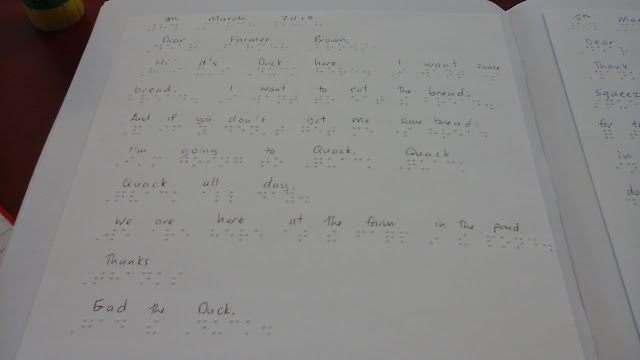 3rd March 2018
Dear Farmer Brown,
Hi it's Duck here. I want some
bread. I want to eat the bread.
And if you don't get me some bread
I'm going to Quack. Quack
Quack all day.
We are here at the farm in the pond
Thanks
Gad the Duck.
5th Mar
Dear
Thank
squeez
for t
in
do